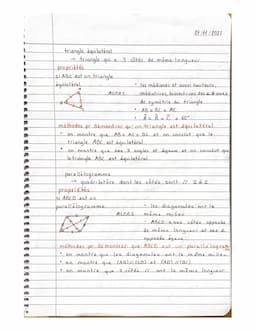 triangle équilatéral
→ triangle qui a 3 côtés de même longueur
propriétés
si ABC est un triangle
équilatéral
ALORS
• les médianes et aussi hauteurs,
médiatrices, bissectrices des 3
de symétrie du triangle
• AB = BC = AC
• Â = B̂ = Ĉ = 60°
méthodes pr démontrer qu'un triangle est équilatéral
• on montre que AB = AC = BC et on conclut que le
triangle ABC est équilatéral
• on montre que ses 3 angles st égaux et on conclut que
le triangle ABC est équilatéral
parallélogramme
→ quadrilatère dont les côtés sont // 2 à 2
propriétés
si ABCD est un
parallélogramme
ALORS
• les diagonales ont le
même milieu
• ABCD a ses côtés opposés
de même longueur et ses
opposés égaux
méthodes pr démontrer que ABCD est un parallélogramme
• on montre que les diagonales ont le même milieu
• on montre que (AB)//(CD) et (AD)//(BC)
• on montre que 2 côtés // ont la même longueur